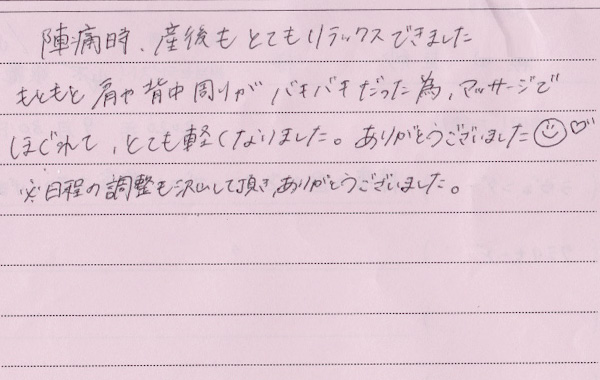 陣痛時、産後もとてもリラックスできました
もともと肩や背中周りがバキバキだった為、マッサージで
ほぐれて、とても軽くなりました。ありがとうございました☺♡
※日程の調整も沢山して頂きありがとうございました。